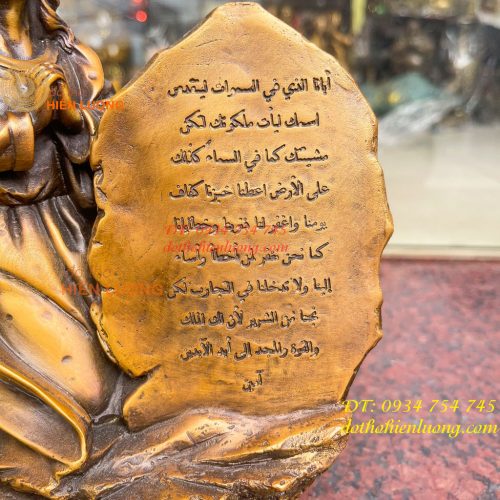 أبانا الذي في السموات ليتقدس
اسمك ليأت ملكوتك لتكن
مشيئتك كما في السماء كذلك
على الأرض اعطنا خبزنا كفاف
يومنا واغفر لنا خطايانا
كما نحن نغفر لمن أخطأ وأساء
إلينا ولا تدخلنا في التجارب لكن
نجنا من الشرير لأن لك الملك
والقوة والمجد الى أبد الآبدين
آمين
HIEN LUONG
HIEN LUONG
ĐT: 0934 754 745
dothohienluong.com
ĐT: 0934 754 745
dothohienluong.com